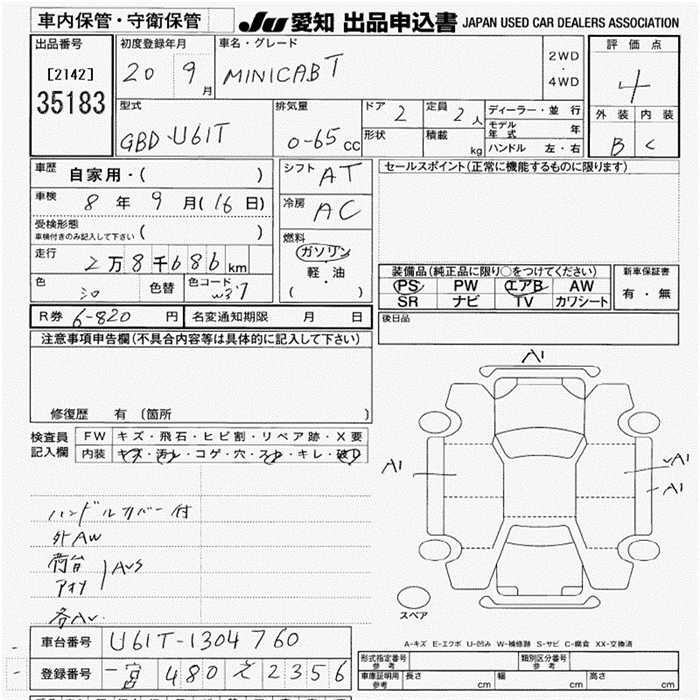 車内保管・守衛保管
JU 愛知 出品申込書 JAPAN USED CAR DEALERS ASSOCIATION
出品番号
[2142]
35183
初度登録年月
20 9 月
車名・グレード
MINICAB T
2WD
・
4WD
評価点
4
外装 内装
B C
型式
GBD-U61T
排気量
0-65 cc
ドア 2
形状
定員 2 人
積載 kg
ディーラー・並 行
モデル年式 年
ハンドル 左・右
車歴 自家用・( )
車検 8 年 9 月(16 日)
受検形態
車検付きのみ記入して下さい ( )
走行 2万8千686 km
色 シロ 色替 色コード W37
シフト AT
冷房 AC
燃料
ガソリン
軽・油
( )
セールスポイント(正常に機能するものに限ります)
装備品(純正品に限り○をつけてください)
PS PW エアB AW
SR ナビ TV カワシート
新車保証書
有・無
R券 6-820 円 名変通知期限 月 日
後日品
注意事項申告欄(不具合内容等は具体的に記入して下さい)
修復歴 有 (箇所 )
検査員
記入欄
FW キズ・飛石・ヒビ割・リペア跡・X要
内装 キズ・汚れ・コゲ・穴・スレ・キレ・破レ
ハンドルカバー付
外AW
荷台
アオリ
AUS
A1
A1
A1
A1
スペア
A-キズ E-エクボ U-凹み W-補修跡 S-サビ C-腐食 XX-交換済
車台番号 U61T-1304760
登録番号 一宮 480 え 2356
形式指定番号
参考
類別区分番号
参考
車庫証明用
参考
長さ cm 幅 cm 高さ cm